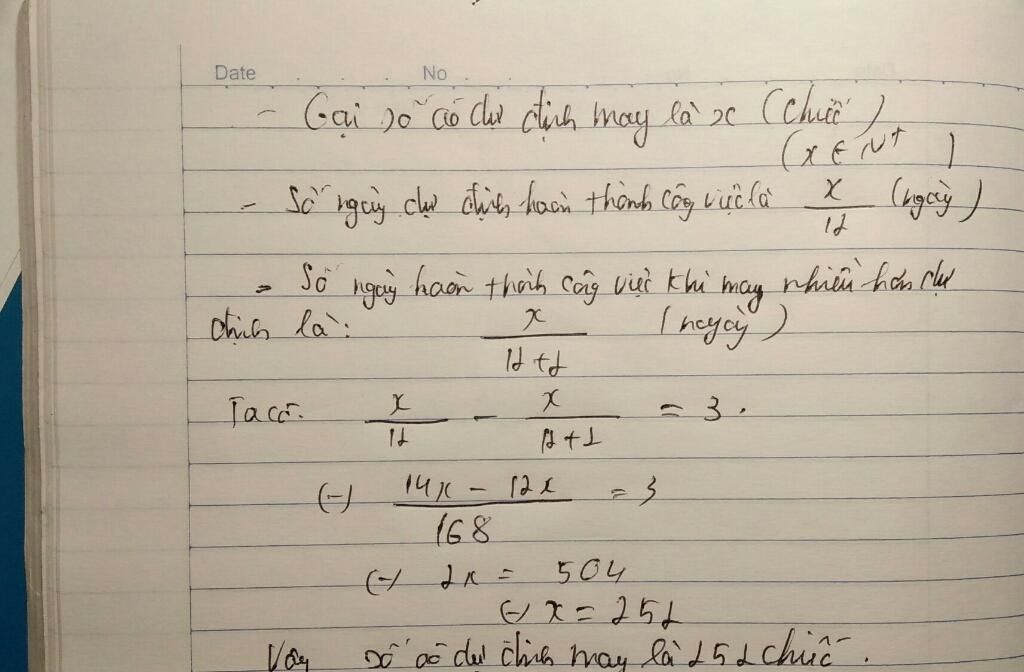 Date . . . No . .
- Gọi số áo dự định may là x (chiếc)
(x ∈ N+)
- Số ngày dự định hoàn thành công việc là x/12 (ngày)
- Số ngày hoàn thành công việc khi may nhiều hơn dự
định là: x/12+2 (ngày)
Ta có: x/12 - x/12+2 = 3.
(-) 14x - 12x/168 = 3
(-) 2x = 504
(-) x = 252
Vậy số áo dự định may là 252 chiếc.